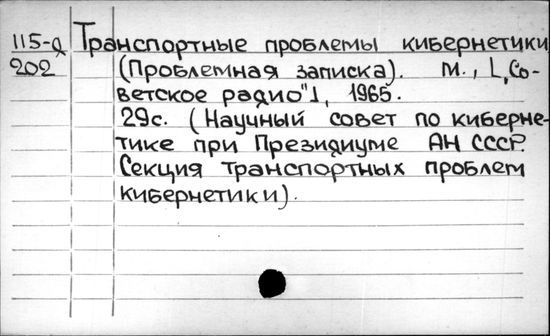 115-д Транспортные проблемы кибернетики
202 (Проблемная записка). М., [„Со-
ветское радио"], 1965.
29с. (Научный совет по киберне-
тике при Президиуме АН СССР.
Секция транспортных проблем
кибернетики).